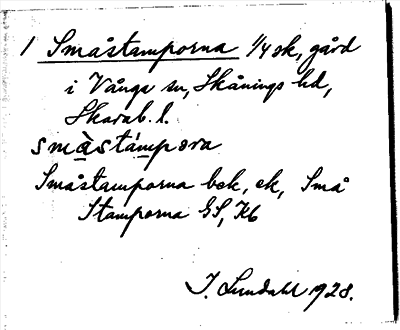 1 Småstamporna 1/4 sk, gård
i Vånga sn, Skånings hd,
Skarab. l.
smàstámpora
Småstamporna bek, ek, Små
Stamporna GS, Kb
I. Lundahl 1928.